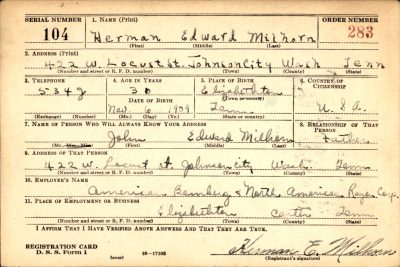 SERIAL NUMBER 1. NAME (Print) ORDER NUMBER
104 Herman Edward Milhorn 283
(First) (Middle) (Last)
2. ADDRESS (Print)
422 W. Locust St. Johnson City Wash Tenn
(Number and street or R. F. D. number) (Town) (County) (State)
3. TELEPHONE 4. AGE IN YEARS 5. PLACE OF BIRTH 6. COUNTRY OF CITIZENSHIP
5342 30 Elizabethton
DATE OF BIRTH (Town or county)
Nov. 6 1909 Tenn U.S.A.
(Exchange) (Number) (Mo.) (Day) (Yr.) (State or country)
7. NAME OF PERSON WHO WILL ALWAYS KNOW YOUR ADDRESS 8. RELATIONSHIP OF THAT PERSON
John Edward Milhorn Father
(First) (Middle) (Last)
9. ADDRESS OF THAT PERSON
422 W. Locust St. Johnson City Wash. Tenn
(Number and street or R. F. D. number) (Town) (County) (State)
10. EMPLOYER'S NAME
American Bemberg & North American Rayon Corp.
11. PLACE OF EMPLOYMENT OR BUSINESS
Elizabethton Carter Tenn
(Number and street or R. F. D. number) (Town) (County) (State)
I AFFIRM THAT I HAVE VERIFIED ABOVE ANSWERS AND THAT THEY ARE TRUE.
REGISTRATION CARD
D. S. S. Form 1 (over) 16—17105 Herman E. Milhorn
(Registrant's signature)